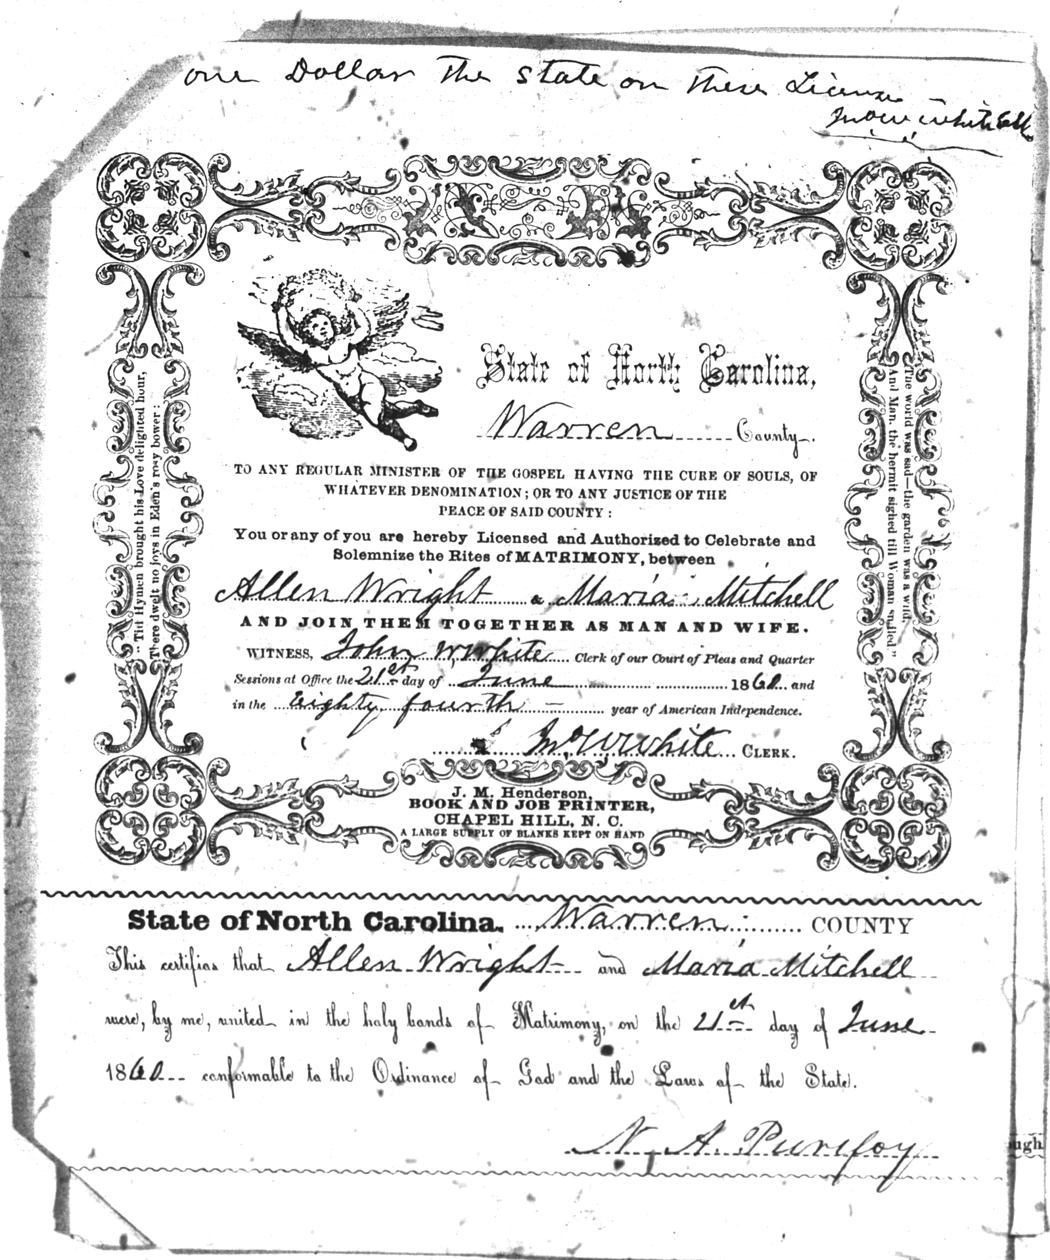 one Dollar The State on These License
Jno W White Clk
State of North Carolina,
Warren County.
TO ANY REGULAR MINISTER OF THE GOSPEL HAVING THE CURE OF SOULS, OF
WHATEVER DENOMINATION; OR TO ANY JUSTICE OF THE
PEACE OF SAID COUNTY:
You or any of you are hereby Licensed and Authorized to Celebrate and
Solemnize the Rites of MATRIMONY, between
Allen Wright & Maria Mitchell
AND JOIN THEM TOGETHER AS MAN AND WIFE.
WITNESS, John W White Clerk of our Court of Pleas and Quarter
Sessions at Office the 21st day of June 1860 and
in the Eighty fourth year of American Independence.
Jno W White CLERK.
"Till Hymen brought his Love delighted hour,
There dwelt no joys in Eden's rosy bower:
The world was sad—the garden was a wild,
And Man, the hermit sighed till Woman smiled"
J. M. Henderson,
BOOK AND JOB PRINTER,
CHAPEL HILL, N. C.
A LARGE SUPPLY OF BLANKS KEPT ON HAND
State of North Carolina. Warren COUNTY
This certifies that Allen Wright and Maria Mitchell
were, by me, united in the holy bands of Matrimony, on the 21st day of June
1860 conformable to the Ordinance of God and the Laws of the State.
N. A. Purefoy
ugh